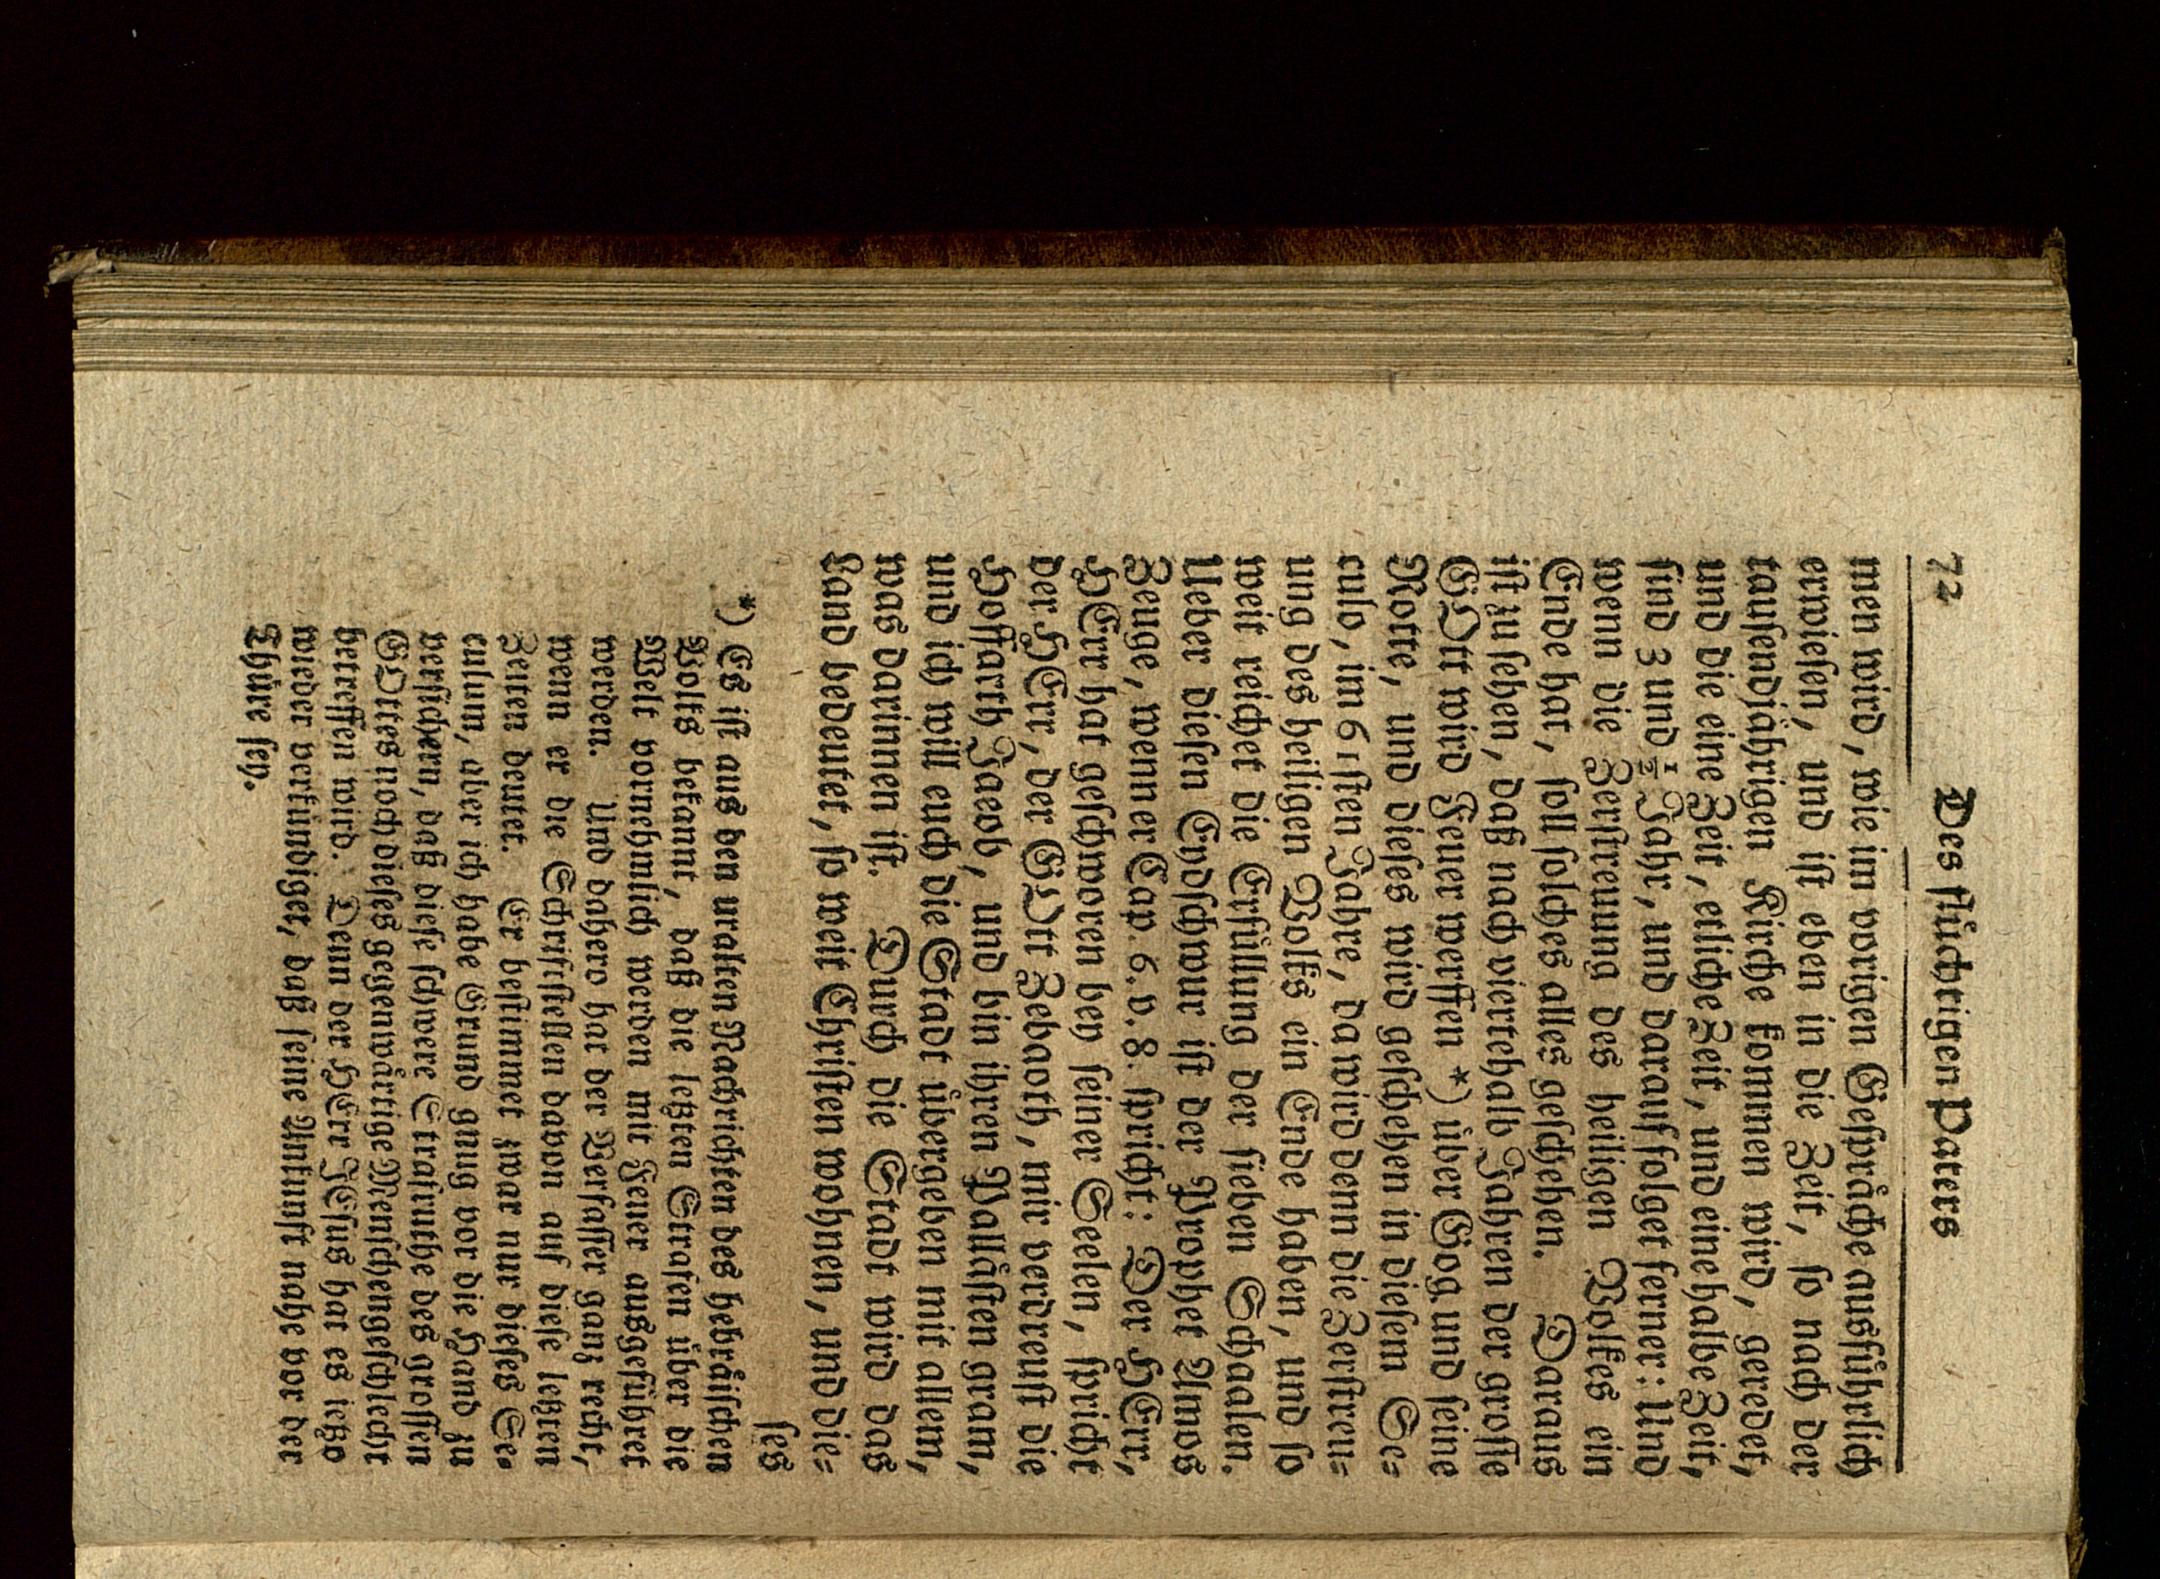 72 Des flüchtigen Paters
men wird, wie im vorigen Gespräche ausführlich
erwiesen, und ist eben in die Zeit, so nach der
tausendjährigen Kirche kommen wird, geredet,
und die eine Zeit, etliche Zeit, und eine halbe Zeit,
sind 3 und ½ Jahr, und darauf folget ferner: Und
wenn die Zerstreuung des heiligen Volkes ein
Ende hat, soll solches alles geschehen. Daraus
ist zu sehen, daß nach viertehalb Jahren der grosse
GOtt wird Feuer werffen *) über Gog und seine
Rotte, und dieses wird geschehen in diesem Se=
culo, im 61sten Jahre, da wird denn die Zerstreu=
ung des heiligen Volks ein Ende haben, und so
weit reichet die Erfüllung der sieben Schaalen.
Ueber diesen Endschwur ist der Prophet Amos
Zeuge, wenn er Cap. 6. v. 8. spricht: Der HErr,
HErr hat geschworen bey seiner Seelen, spricht
der HErr, der GOtt Zebaoth, mir verdreust die
Hoffarth Jacob, und bin ihren Pallästen gram,
und ich will euch die Stadt übergeben mit allem,
was darinnen ist. Durch die Stadt wird das
Land bedeutet, so weit Christen wohnen, und die=
ses
*) Es ist aus den uralten Nachrichten des hebräischen
Volks bekannt, daß die letzten Strafen über die
Welt vornehmlich werden mit Feuer ausgeführet
werden. Und dahero hat der Verfasser ganz recht,
wenn er die Schriftstellen davon auf diese letzten
Zeiten deutet. Er bestimmet zwar nur dieses Se=
culum, aber ich habe Grund gnug vor die Hand zu
versichern, daß diese schwere Strafruthe des grossen
GOttes noch dieses gegenwärtige Menschengeschlecht
betreffen wird. Denn der HErr JEsus hat es ietzo
wieder verkündiget, daß seine Ankunft nahe vor der
Thüre sey.